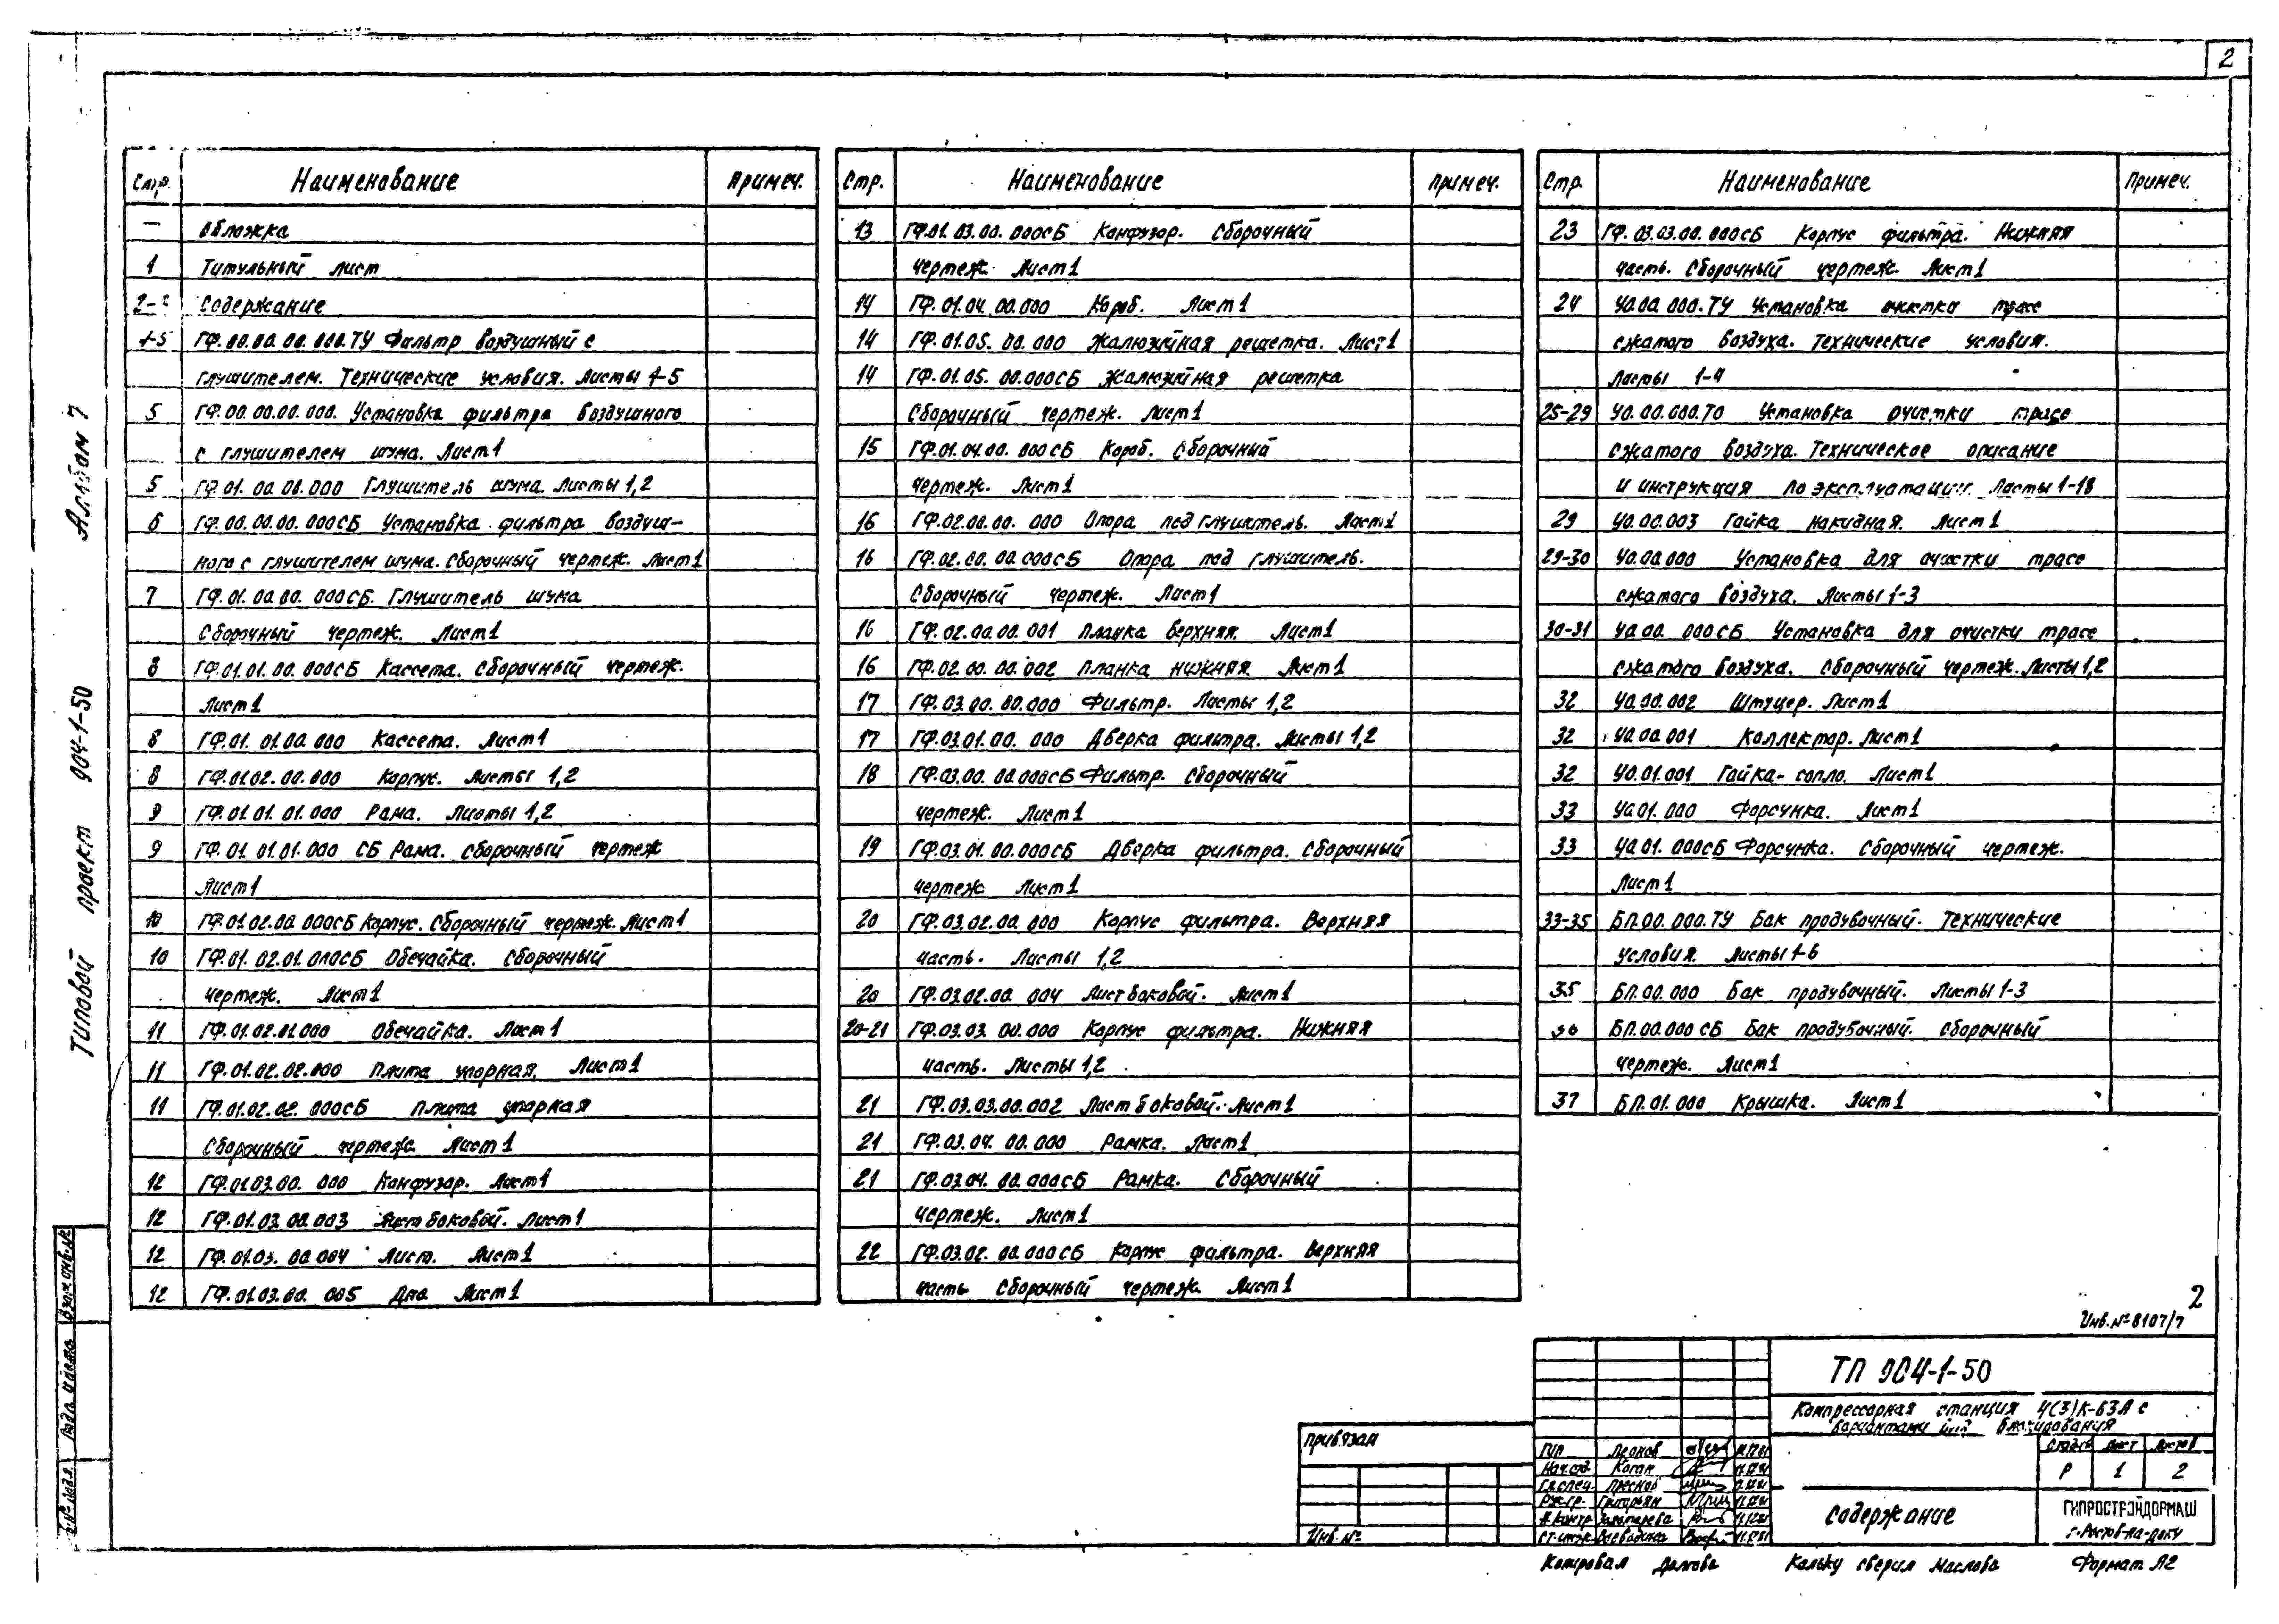 2
Альбом 7
Типовой проект 904-1-50
Стр. Наименование Примеч.
— Обложка
1 Титульный лист
Содержание
4-5 ГФ.00.00.00.000.ТУ Фильтр воздушный с
глушителем. Технические условия. Листы 1-5
5 ГФ.00.00.00.000. Установка фильтра воздушного
с глушителем шума. Лист 1
5 ГФ.01.00.00.000 Глушитель шума. Листы 1,2
6 ГФ.00.00.00.000СБ Установка фильтра воздуш-
ного с глушителем шума. Сборочный чертеж. Лист 1
7 ГФ.01.00.00.000СБ. Глушитель шума
Сборочный чертеж. Лист 1
8 ГФ.01.01.00.000СБ Кассета. Сборочный чертеж.
Лист 1
8 ГФ.01.01.00.000 Кассета. Лист 1
8 ГФ.01.02.00.000 Корпус. Листы 1,2
9 ГФ.01.01.01.000 Рама. Листы 1,2
9 ГФ.01.01.01.000 СБ Рама. Сборочный чертеж
Лист 1
10 ГФ.01.02.00.000СБ Корпус. Сборочный чертеж. Лист 1
10 ГФ.01.02.01.000СБ Обечайка. Сборочный
чертеж. Лист 1
11 ГФ.01.02.01.000 Обечайка. Лист 1
11 ГФ.01.02.02.000 Плита упорная. Лист 1
11 ГФ.01.02.02.000СБ Плита упорная
Сборочный чертеж. Лист 1
12 ГФ.01.03.00.000 Конфузор. Лист 1
12 ГФ.01.03.00.003 Лист боковой. Лист 1
12 ГФ.01.03.00.004 Лист. Лист 1
12 ГФ.01.03.00.005 Дно Лист 1
Стр. Наименование Примеч.
13 ГФ.01.03.00.000СБ Конфузор. Сборочный
чертеж. Лист 1
14 ГФ.01.04.00.000 Короб. Лист 1
14 ГФ.01.05.00.000 Жалюзийная решетка. Лист 1
14 ГФ.01.05.00.000СБ Жалюзийная решетка
Сборочный чертеж. Лист 1
15 ГФ.01.04.00.000СБ Короб. Сборочный
чертеж. Лист 1
16 ГФ.02.00.00.000 Опора под глушитель. Лист 1
16 ГФ.02.00.00.000СБ Опора под глушитель.
Сборочный чертеж. Лист 1
16 ГФ.02.00.00.001 Планка верхняя. Лист 1
16 ГФ.02.00.00.002 Планка нижняя. Лист 1
17 ГФ.03.00.00.000 Фильтр. Листы 1,2
17 ГФ.03.01.00.000 Дверка фильтра. Листы 1,2
18 ГФ.03.00.00.000СБ Фильтр. Сборочный
чертеж. Лист 1
19 ГФ.03.01.00.000СБ Дверка фильтра. Сборочный
чертеж Лист 1
20 ГФ.03.02.00.000 Корпус фильтра. Верхняя
часть. Листы 1,2
20 ГФ.03.02.00.004 Лист боковой. Лист 1
20-21 ГФ.03.03.00.000 Корпус фильтра. Нижняя
часть. Листы 1,2
21 ГФ.03.03.00.002 Лист боковой. Лист 1
21 ГФ.03.04.00.000 Рамка. Лист 1
21 ГФ.03.04.00.000СБ Рамка. Сборочный
чертеж. Лист 1
22 ГФ.03.02.00.000СБ Корпус фильтра. Верхняя
часть Сборочный чертеж. Лист 1
Стр. Наименование Примеч.
23 ГФ.03.03.00.000СБ Корпус фильтра. Нижняя
часть. Сборочный чертеж. Лист 1
24 УО.00.000.ТУ Установка очистки трасс
сжатого воздуха. Технические условия.
Листы 1-4
25-29 УО.00.000.ТО Установка очистки трасс
сжатого воздуха. Техническое описание
и инструкция по эксплуатации. Листы 1-18
29 УО.00.003 Гайка накидная. Лист 1
29-30 УО.00.000 Установка для очистки трасс
сжатого воздуха. Листы 1-3
30-31 УО.00.000СБ Установка для очистки трасс
сжатого воздуха. Сборочный чертеж. Листы 1,2
32 УО.00.002 Штуцер. Лист 1
32 УО.00.001 Коллектор. Лист 1
32 УО.01.001 Гайка-сопло. Лист 1
33 УО.01.000 Форсунка. Лист 1
33 УО.01.000СБ Форсунка. Сборочный чертеж.
Лист 1
33-35 БП.00.000.ТУ Бак продувочный. Технические
условия. Листы 1-6
35 БП.00.000 Бак продувочный. Листы 1-3
36 БП.00.000 СБ Бак продувочный. Сборочный
чертеж. Лист 1
37 БП.01.000 Крышка. Лист 1
2
Инв.№ 8107/7
ТП 904-1-50
Компрессорная станция 4(3)К-63А с
вариантами блокирования
Стадия Лист Листов
Р 1 2
Содержание
ГИПРОСТРОЙДОРМАШ
г. Ростов-на-Дону
Привязан
Инв.№
ГИП Леонов
Нач.отд. Коган
Гл.спец.
Рук.гр. Григорьян
Н.контр.
Ст.инж.
Взам.инв.№
Подп. и дата
Инв.№ подл.
Копировал Кальку сверил Маслова Формат А2